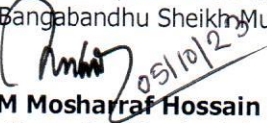 Bangabandhu Sheikh Mu
05/10/23
M Mosharraf Hossain